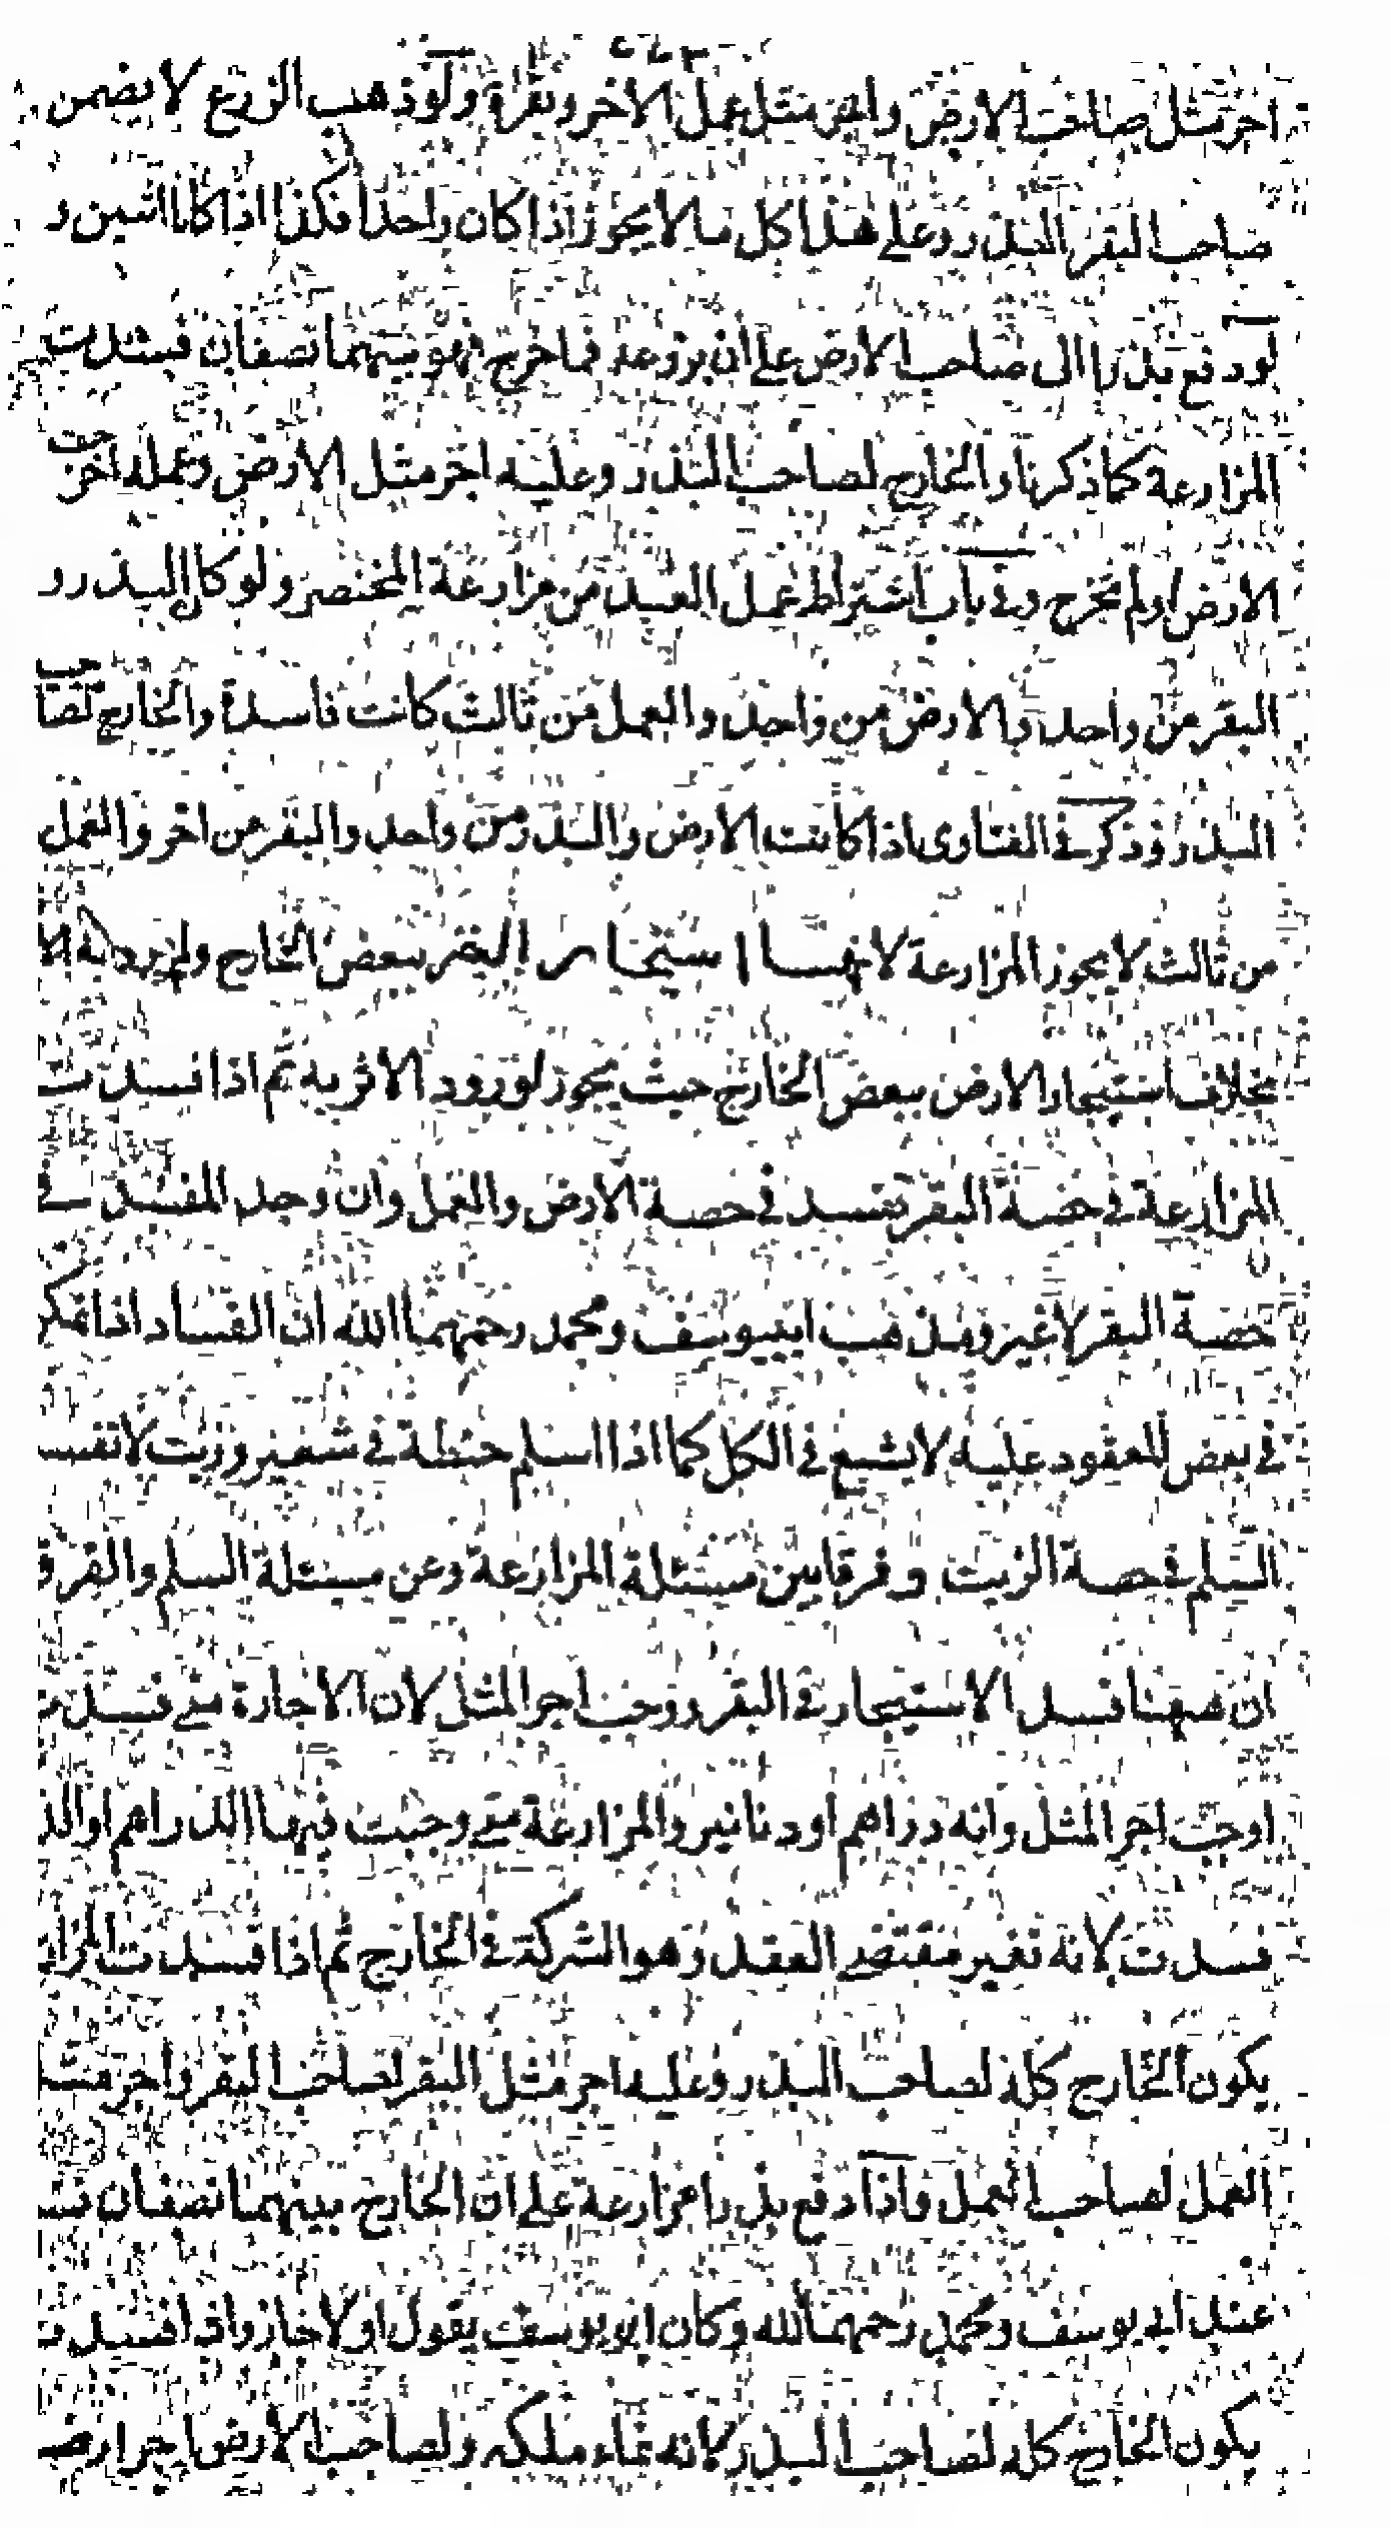 اجر مثل صاحب الارض واجر مثل عمل الاخر وبقره ولو ذهب الزرع لا يضمن
صاحب البقر البذر وعلى هذا كل ما لا يجوز اذا كان واحدا فكذا اذا كانا اثنين و
لو دفع بذرا الى صاحب الارض على ان يزرعه فما خرج فهو بينهما نصفان فسدت
المزارعة كما ذكرنا والخارج لصاحب البذر وعليه اجر مثل الارض وعمله اخرجت
الارض او لم تخرج وفي باب اشتراط عمل العبد من مزارعة المختصر ولو كان البذر و
البقر من واحد والارض من واحد والعمل من ثالث كانت فاسدة والخارج لصاحب
البذر وذكر في الفتاوى اذا كانت الارض والبذر من واحد والبقر من اخر والعمل
من ثالث لا يجوز المزارعة لانها استيجار البقر ببعض الخارج ولم يرد به الا
بخلاف استيجار الارض ببعض الخارج حيث يجوز لورود الاثر به ثم اذا فسدت
المزارعة في حصة البقر تفسد في حصة الارض والعمل وان وجد المفسد في
حصة البقر لا غير ومذهب ابييوسف ومحمد رحمهما الله ان الفساد اذا تمكن
في بعض المعقود عليه لا يشيع في الكل كما اذا اسلم حنطة في شعير وزيت لا تفسد
السلم في حصة الزيت وفرقا بين مسئلة المزارعة وعن مسئلة السلم والفرق
ان ههنا فسد الاستيجار في البقر ووجب اجر المثل لان الاجارة متى فسدت
اوجبت اجر المثل وانه دراهم او دنانير والمزارعة متى وجبت فيها الدراهم او الد
فسدت لانه تغير مقتضى العقد وهو الشركة في الخارج ثم اذا فسدت المزارعة
يكون الخارج كله لصاحب البذر وعليه اجر مثل البقر لصاحب البقر واجر مثل
العمل لصاحب العمل واذا دفع بذرا مزارعة على ان الخارج بينهما نصفان فسد
عند ابي يوسف ومحمد رحمهما الله وكان ابو يوسف يقول اولا جاز واذا فسدت
يكون الخارج كله لصاحب البذر كانه نماء ملكه ولصاحب الارض اجر ارضه